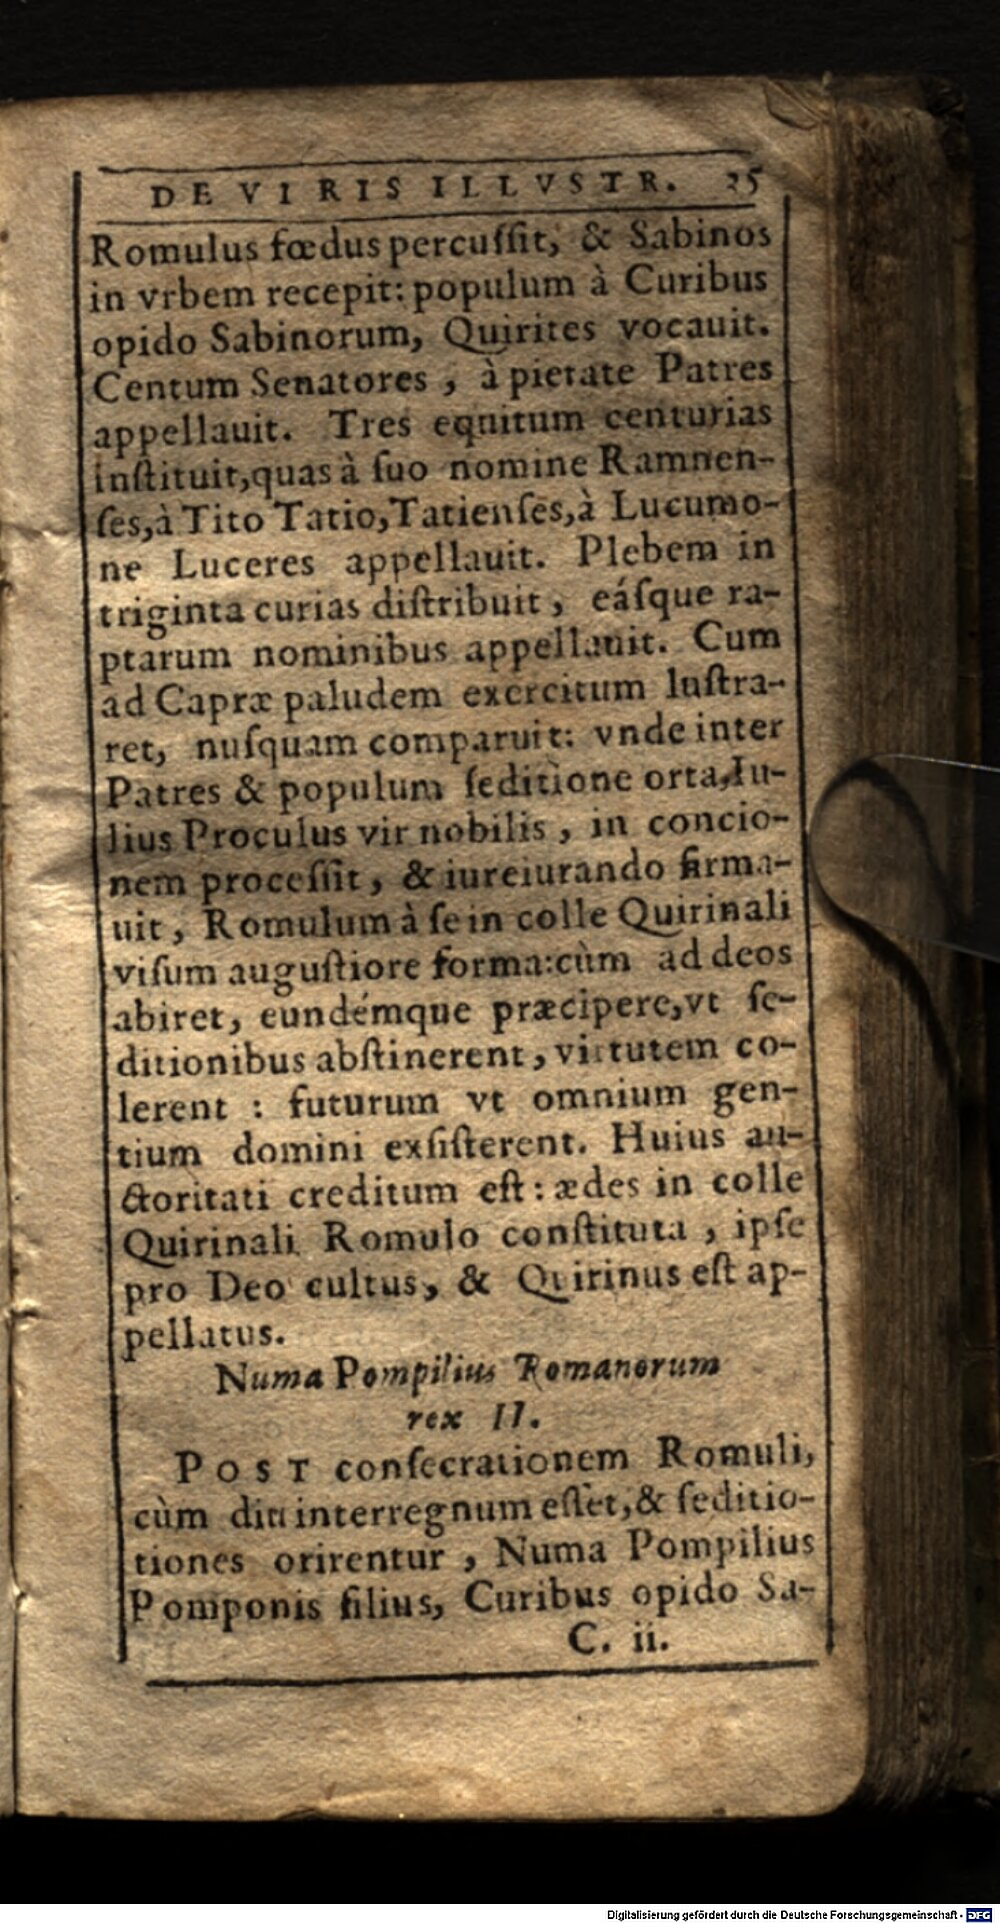 DE VIRIS ILLVSTR. 25
Romulus fœdus percuſſit, & Sabinos
in vrbem recepit: populum à Curibus
opido Sabinorum, Quirites vocauit.
Centum Senatores, à pietate Patres
appellauit. Tres equitum centurias
inſtituit, quas à ſuo nomine Ramnen-
ſes, à Tito Tatio, Tatienſes, à Lucumo-
ne Luceres appellauit. Plebem in
triginta curias diſtribuit, eáſque ra-
ptarum nominibus appellauit. Cum
ad Capræ paludem exercitum luſtra-
ret, nuſquam comparuit: vnde inter
Patres & populum ſeditione orta, Iu-
lius Proculus vir nobilis, in concio-
nem proceſſit, & iureiurando firma-
uit, Romulum à ſe in colle Quirinali
viſum auguſtiore forma: cùm ad deos
abiret, eundémque præcipere, vt ſe-
ditionibus abſtinerent, virtutem co-
lerent : futurum vt omnium gen-
tium domini exſiſterent. Huius au-
ctoritati creditum eſt: ædes in colle
Quirinali Romulo conſtituta, ipſe
pro Deo cultus, & Quirinus eſt ap-
pellatus.
Numa Pompilius Romanorum
rex II.
POST conſecrationem Romuli,
cùm diu interregnum eſſet, & ſeditio-
tiones orirentur, Numa Pompilius
Pomponis filius, Curibus opido Sa-
C. ii.
Digitalisierung gefördert durch die Deutsche Forschungsgemeinschaft - DFG